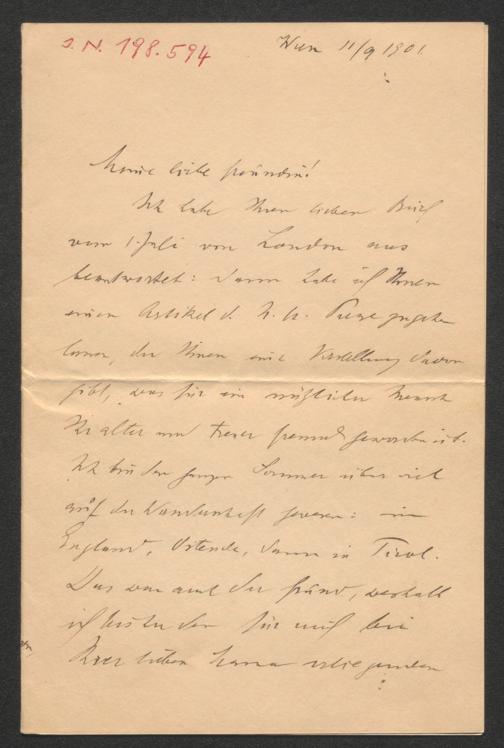 J. N. 198.594
Wien 11/9 1901.
Meine liebe Freundin!
Ich habe Ihren lieben Brief
vom 1. Juli von London aus
beantwortet: dann habe ich Ihnen
einen Artikel d. N. fr. Presse zugehen
lassen, der Ihnen eine Vorstellung davon
gibt, was für ein nützlicher Mensch
Ihr alter und treuer Freund geworden ist.
Ich bin den ganzen Sommer über viel
auf der Wanderschaft gewesen: in
England, Ostende, dann in Tirol.
Das war auch der Grund, weshalb
ich bisher den für mich bei
Ihrer lieben Mama erliegenden